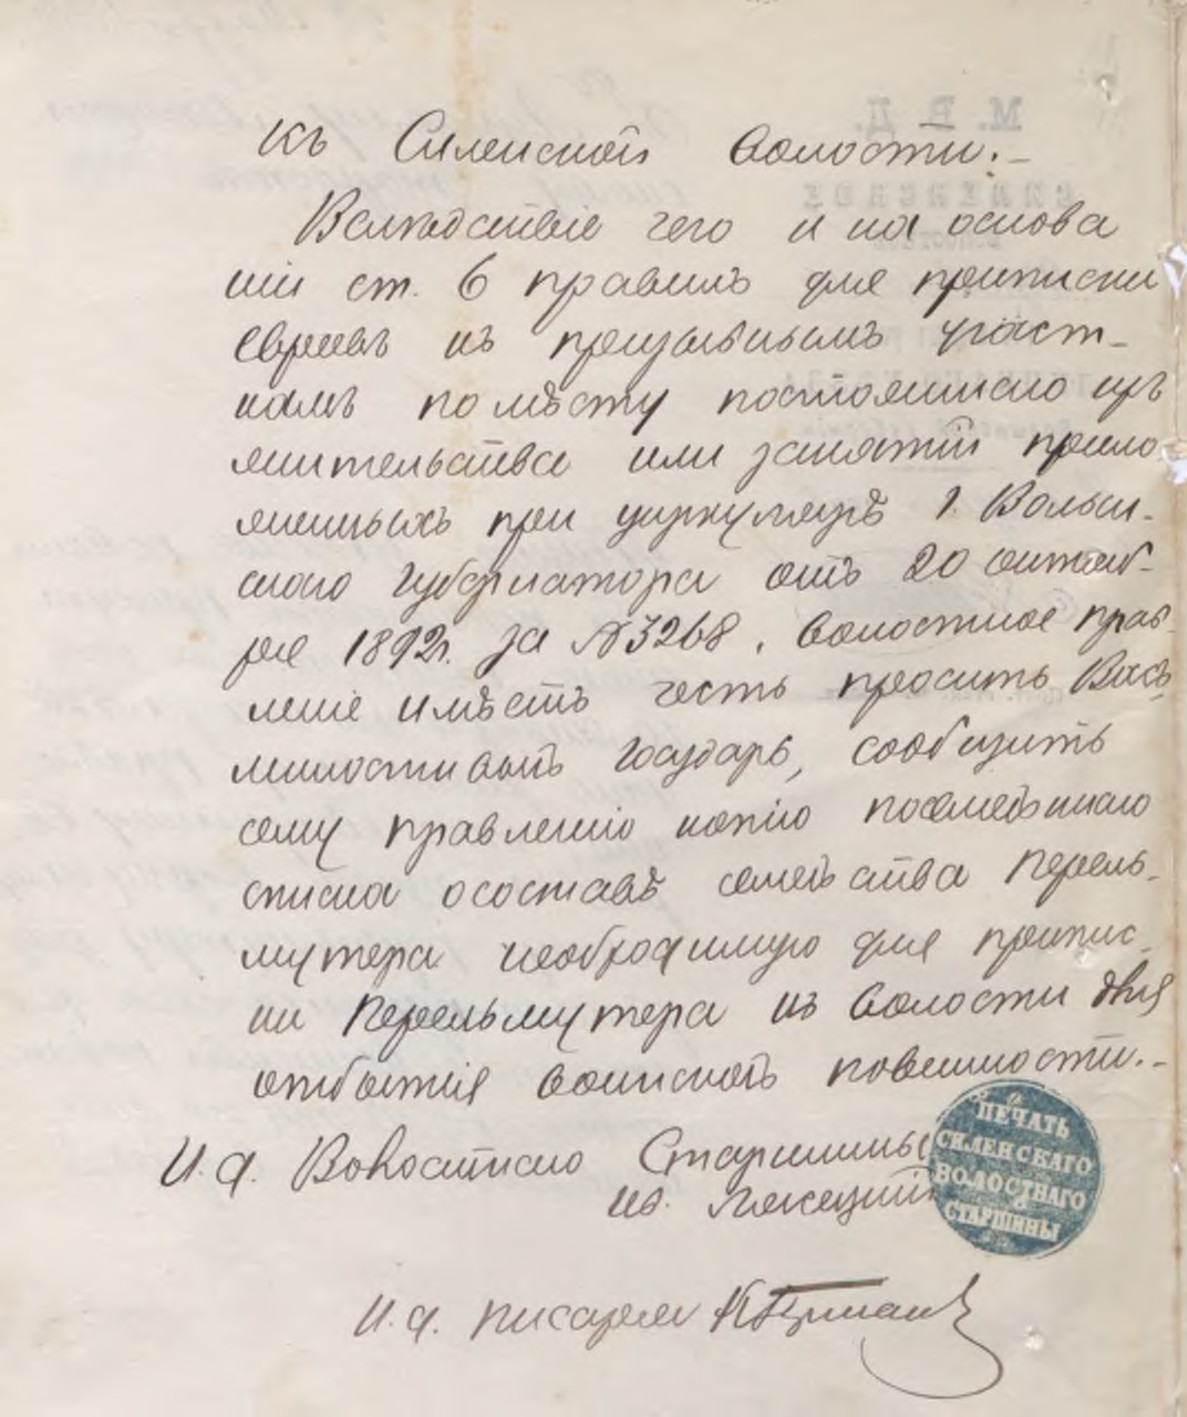 къ Силенской волости.-
Вслѣдствіе чего и на основа
ніи ст. 6 правилъ для приписки
евреевъ къ призывнымъ участ-
камъ по мѣсту постояннаго ихъ
жительства или занятій прило
женныхъ при циркулярѣ г. Волын-
скаго Губернатора отъ 20 октяб-
ря 1892г. за №3268, волостное прав-
леніе имѣетъ честь просить Васъ,
милостивый Государь, сообщить
сему правленію копію посемейнаго
списка о составѣ семейства Перель-
мутера необходимую для припис-
ки Перельмутера къ волости для
отбытія воинской повинности.-
И. д. Волостного Старшины
И. д. писаря
ПЕЧАТЬ
СИЛЕНСКАГО
ВОЛОСТНАГО
СТАРШИНЫ